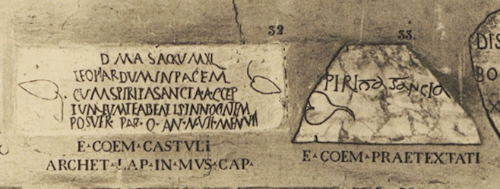 32
D MA SACRUM XL
LEOPARDUM IN PACEM
CUM SPIRITA SANCTA ACCEP
TUM BUMTE ABEATIS INNOCINTEM
POSVER PAR Q AN N VII MEN VII
E·COEM·CASTVLI
ARCHET·LAP·IN·MVS·CAP·
33
SPIRITO SANCTO
E·COEM·PRAETEXTATI
DIS
BO